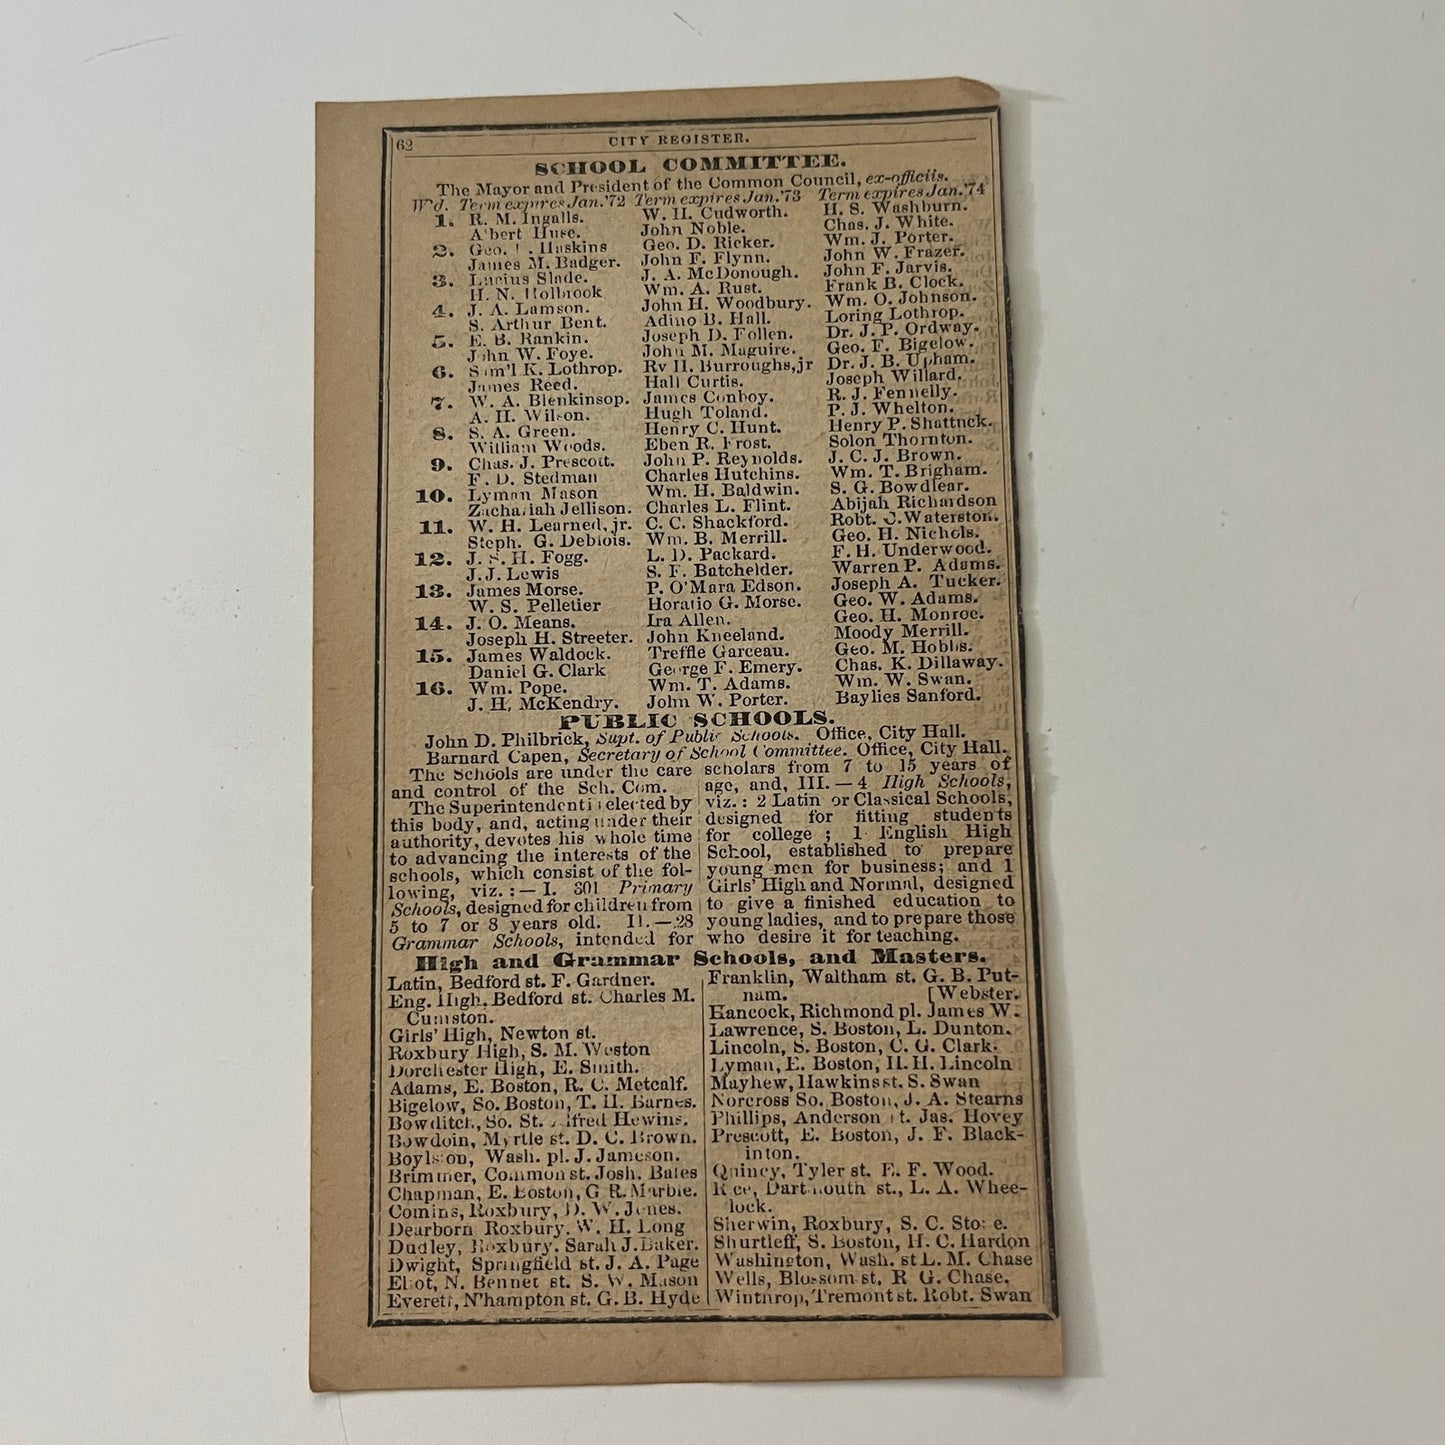 62
CITY REGISTER.
SCHOOL COMMITTEE.
The Mayor and President of the Common Council, ex-officiis.
W'd. Term expires Jan.'72 Term expires Jan.'73 Term expires Jan.'74
1. R. M. Ingalls. W. H. Cudworth. H. S. Washburn.
Albert Huse. John Noble. Chas. J. White.
2. Geo. Haskins Geo. D. Ricker. Wm. J. Porter.
James M. Badger. John F. Flynn. John W. Frazer.
3. Lucius Slade. J. A. McDonough. John F. Jarvis.
H. N. Holbrook Wm. A. Rust. Frank B. Clock.
4. J. A. Lamson. John H. Woodbury. Wm. O. Johnson.
S. Arthur Bent. Adino B. Hall. Loring Lothrop.
5. E. B. Rankin. Joseph D. Follen. Dr. J. P. Ordway.
John W. Foye. John M. Maguire. Geo. F. Bigelow.
6. Sam'l K. Lothrop. Rv H. Burroughs, jr Dr. J. B. Upham.
James Reed. Hall Curtis. Joseph Willard.
7. W. A. Blenkinsop. James Conboy. R. J. Fennelly.
A. H. Wilson. Hugh Toland. P. J. Whelton.
8. S. A. Green. Henry C. Hunt. Henry P. Shattuck.
William Woods. Eben R. Frost. Solon Thornton.
9. Chas. J. Prescott. John P. Reynolds. J. C. J. Brown.
F. D. Stedman Charles Hutchins. Wm. T. Brigham.
10. Lyman Mason Wm. H. Baldwin. S. G. Bowdlear.
Zachariah Jellison. Charles L. Flint. Abijah Richardson
11. W. H. Learned, jr. C. C. Shackford. Robt. C. Waterston.
Steph. G. Deblois. Wm. B. Merrill. Geo. H. Nichols.
12. J. S. H. Fogg. L. D. Packard. F. H. Underwood.
J. J. Lewis S. F. Batchelder. Warren P. Adams.
13. James Morse. P. O'Mara Edson. Joseph A. Tucker.
W. S. Pelletier Horatio G. Morse. Geo. W. Adams.
14. J. O. Means. Ira Allen. Geo. H. Monroe.
Joseph H. Streeter. John Kneeland. Moody Merrill.
15. James Waldock. Treffle Garceau. Geo. M. Hobbs.
Daniel G. Clark George F. Emery. Chas. K. Dillaway.
16. Wm. Pope. Wm. T. Adams. Wm. W. Swan.
J. H, McKendry. John W. Porter. Baylies Sanford.
PUBLIC SCHOOLS.
John D. Philbrick, Supt. of Public Schools. Office, City Hall.
Barnard Capen, Secretary of School Committee. Office, City Hall.
The Schools are under the care
and control of the Sch. Com.
The Superintendent is elected by
this body, and, acting under their
authority, devotes his whole time
to advancing the interests of the
schools, which consist of the fol-
lowing, viz. : — I. 301 Primary
Schools, designed for children from
5 to 7 or 8 years old. II. — 28
Grammar Schools, intended for
scholars from 7 to 15 years of
age, and, III. — 4 High Schools,
viz. : 2 Latin or Classical Schools,
designed for fitting students
for college ; 1 English High
School, established to prepare
young men for business; and 1
Girls' High and Normal, designed
to give a finished education to
young ladies, and to prepare those
who desire it for teaching.
High and Grammar Schools, and Masters.
Latin, Bedford st. F. Gardner.
Eng. High, Bedford st. Charles M.
Cumston.
Girls' High, Newton st.
Roxbury High, S. M. Weston
Dorchester High, E. Smith.
Adams, E. Boston, R. C. Metcalf.
Bigelow, So. Boston, T. H. Barnes.
Bowditch, So. St. Alfred Hewins.
Bowdoin, Myrtle st. D. C. Brown.
Boylston, Wash. pl. J. Jameson.
Brimmer, Common st. Josh. Bates
Chapman, E. Boston, G R. Marble.
Comins, Roxbury, D. W. Jones.
Dearborn Roxbury. W. H. Long
Dudley, Roxbury. Sarah J. Baker.
Dwight, Springfield st. J. A. Page
Eliot, N. Bennet st. S. W. Mason
Everett, N'hampton st. G. B. Hyde
Franklin, Waltham st. G. B. Put-
nam. [Webster.
Hancock, Richmond pl. James W.
Lawrence, S. Boston, L. Dunton.
Lincoln, S. Boston, C. G. Clark.
Lyman, E. Boston, H. H. Lincoln
Mayhew, Hawkins st. S. Swan
Norcross So. Boston, J. A. Stearns
Phillips, Anderson st. Jas. Hovey
Prescott, E. Boston, J. F. Black-
inton.
Quincy, Tyler st. E. F. Wood.
Rice, Dartmouth st., L. A. Whee-
lock.
Sherwin, Roxbury, S. C. Stone.
Shurtleff, S. Boston, H. C. Hardon
Washington, Wash. st L. M. Chase
Wells, Blossom st, R G. Chase.
Winthrop, Tremont st. Robt. Swan